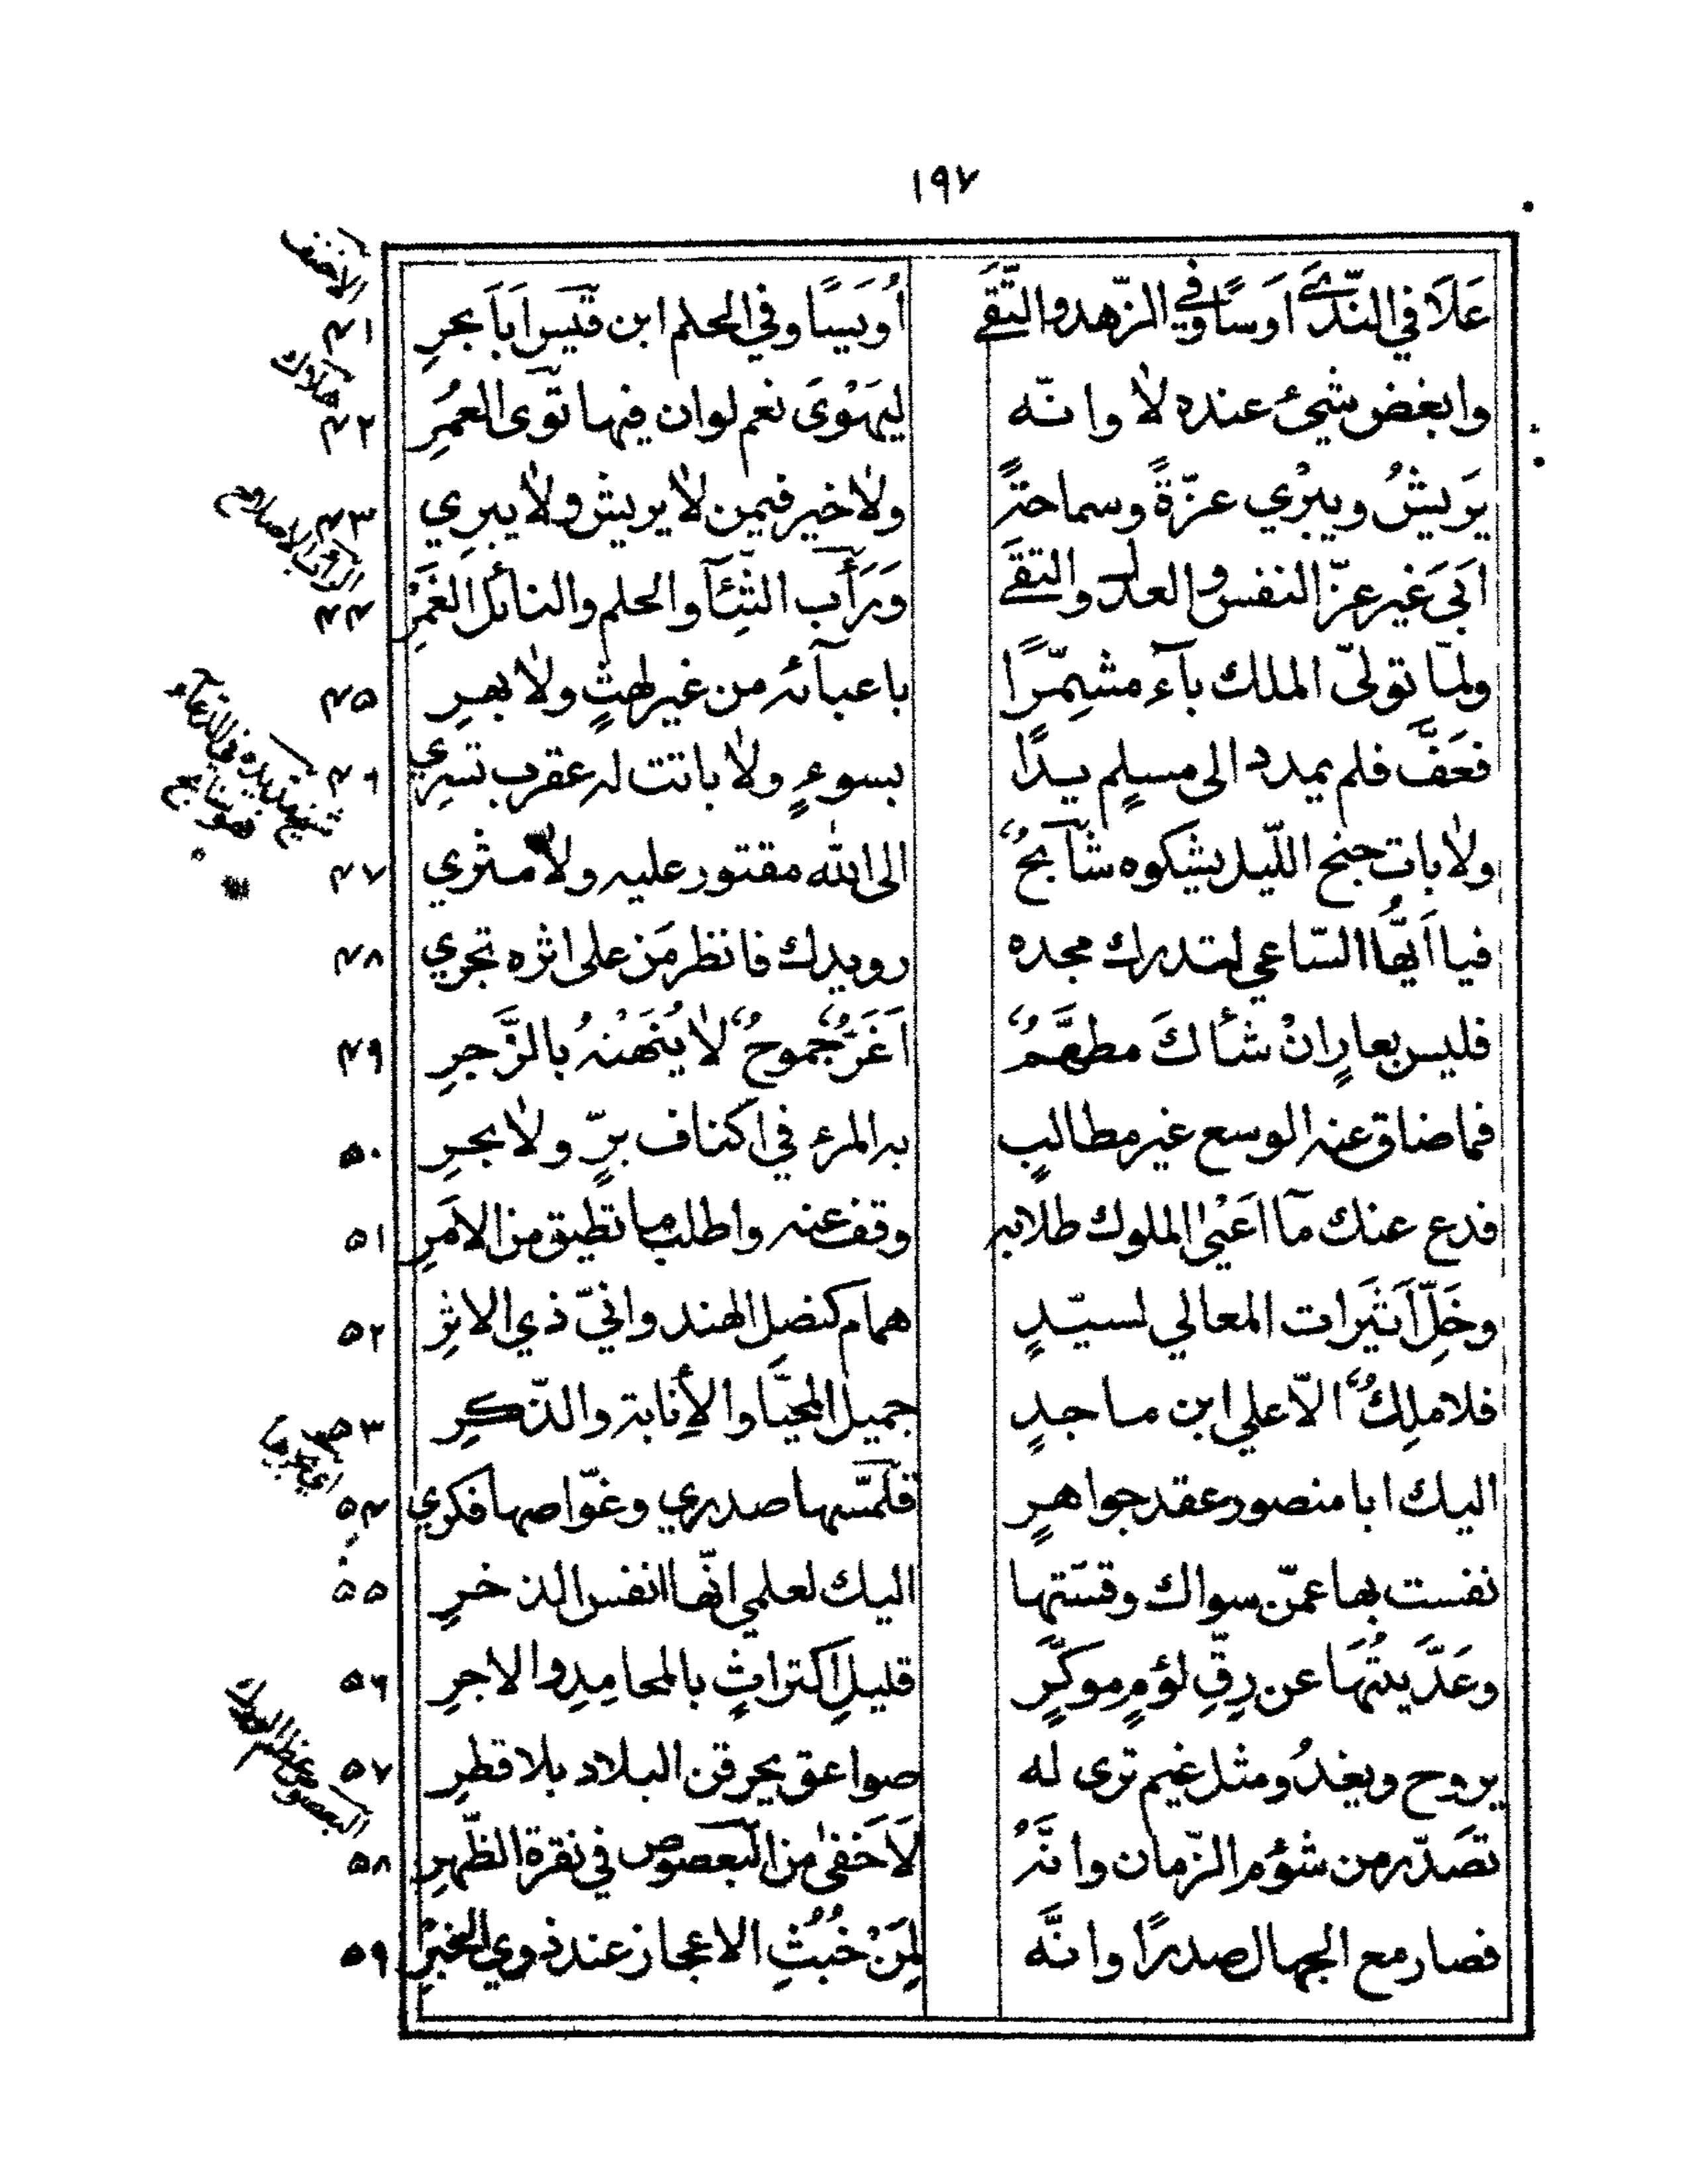 ١٩٧
عَلَا في النّدَىٰ اَوسًا وفي الزّهد والتّقَىٰ اُوَيسًا وفي الحلم ابن قَيسٍ اَبَا بحرِ ٤١
الاحنف
وابغض شيئ عنده لا وانّه ليهَوْىَ نعم لو ان فيها تَوَى العمُرِ ٤٢
هلاك
يَريشُ ويبْرِي عزّةً وسماحةً ولا خير فيمن لا يريش ولا يبرِي ٤٣
اَبَى غير عزّ النفس والعدل والتقَىٰ وَرَأَبِ الثَّأَى والحلم والنائل الغَمْرِ ٤٤
الرأب الاصلاح
ولمّا تولىّ الملك بآء مشمِّرًا باعبآئه من غير لهثٍ ولا بهرِ ٤٥
فعَفَّ فلم يمدد الى مسلم يدًا بسوءٍ ولا باتت له عقرب تسرِي ٤٦
ولا بات جنح اللّيل يشكوه شابحٌ الى الله مقتور عليه ولا مثري ٤٧
فيا اَيُّها السّاعي لتدرك مجده رويدك فانظر مَن على اثره تجري ٤٨
فليس بعارٍ انْ شأاكَ مطهَّمٌ اَغَرُّ جموحٌ لا يُنَهْنَهُ بالزَّجرِ ٤٩
فما ضاق عنه الوسع غير مطالبٍ به المرء في اكناف برٍّ ولا بحرِ ٥٠
فدع عنك مآ اَعْيىٰ الملوك طلابه وقف عنه واطلب ما تطيق من الامَرِ ٥١
وخَلِّ اَثَيرات المعالي لسيّدٍ همام كنصل الهندوانيّ ذي الاثرِ ٥٢
فلا ملِكٌ الّا علي ابن ماجدٍ جميل المحيَّا والاِنابة والذّكرِ ٥٣
اليك ابا منصور عقد جواهرٍ قلَمَّسها صدري وغوّاصها فكري ٥٤
نفست بها عمّن سواك وقستها اليك لعلمي انّها انفس الذخرِ ٥٥
وعَدَّيتُهَا عن رِقِّ لؤمٍ موكَّرٍ قليلِ اكتراثٍ بالمحامِدِ والاجرِ ٥٦
يروح ويغدُو مثل غيم ترى له صواعق يحرقن البلاد بلا قطرِ ٥٧
تصَدّر من شؤم الزّمان وانَّهُ لَاَخفىٰ من البعصوص في نقرة الظّهرِ ٥٨
فصار مع الجهال صدرًا وانَّه لَمِنْ خُبُثِ الاعجاز عند ذوي الخبْرِ ٥٩